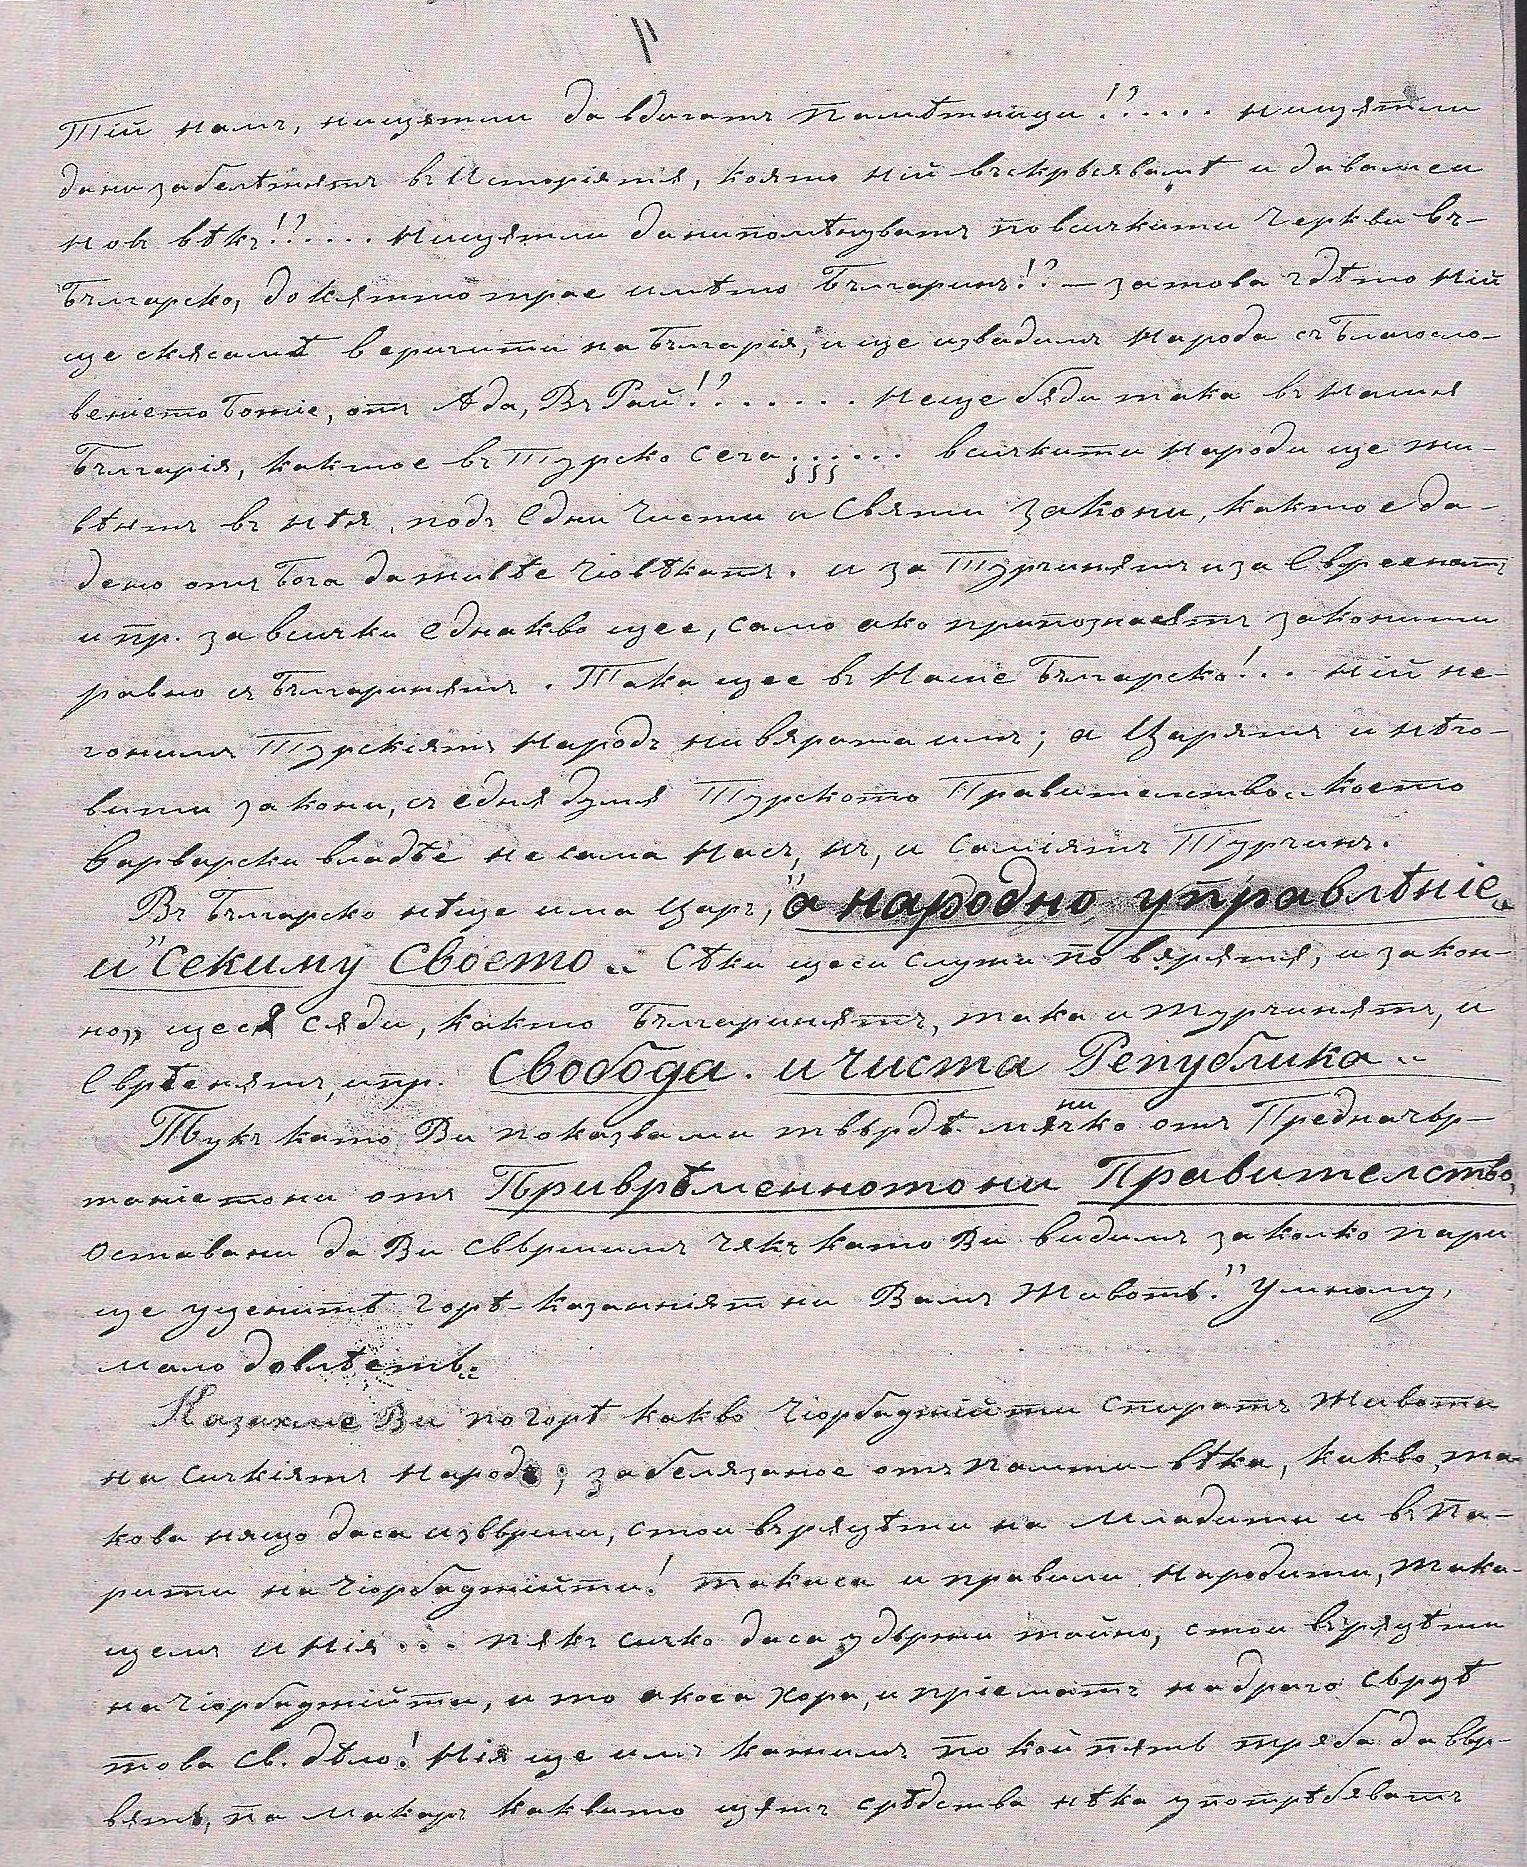 11
Тій намъ, нищятли да вдигатъ Памѣтници!?..... нищятли
дани забелѣжятъ въ Исторіятя, която ній въскръсявамѣ и давамеи
новъ вѣкъ!?..... Нищятли данипомѣнуватъ по всичкити Черкви въ-
Българско, докятто трае имѣто Българинъ!? – затова гдѣто Ній
ще скясамѣ веригити на Българія, и ще извадимъ Народа съ Благосло-
веніето Божіе, отъ Ада, Въ Рай!?...... Неще бяди така въ Нашия
Българія, какъто е въ Турско сега...... всичкити народи ще жи-
вѣятъ въ нѣя, подъ Едни Чисти и Святи Закони, както е да-
дено отъ Бога да живѣе Чіовѣкатъ. и за Турчинятъ и за Евреенатъ
и пр. за всички Еднакво щее, само ако припознаятъ законити
равно съ Българинятъ. Така щее въ Наше Българско!.. Ній не-
гонимъ Турскіятъ Народъ ни вярата имъ; а Царятъ и нѣго-
вити закони, съ една думя Турското Правителство" което
Варварски владѣе не сама Насъ, нъ, и Саміятъ Турчинъ.
Въ Българско нѣще има Царъ, "а народно управлѣніе"
и "Секиму Своето" Сѣки щеси служи по вярятя, и закон-
но" щеся сяди, както Българинятъ, така и турчинятъ, и
Еврѣенятъ, ипр. Свобода. и чиста Република"
Тукъ като Ви показвами твърдѣ мячко отъ Предначър-
ни
таніетони отъ Приврѣменнотони Правителство,
оставани да Ви свършимъ чякъ като Ви видимъ за колко пари
ще уценитѣ Горѣ-казанніятни Вамъ Животъ. "Умному,
мало довлѣетъ"
Казахме Ви погорѣ какво Чіорбаджійти Спиратъ Живота
на сичкіятъ Народъ; забелязаное отъ памти-вѣка, какво, та-
кова нящо даса извърши, стои въряцѣти на Младити и въ Па-
рити на Чіорбаджійти! такаса и правили Народити, така-
щемъ и Нія... пякъ сичко даса удържи тайно, стои въряцѣти
на Чіорбаджійти, и то акоса хора, и пріематъ на драго сърцѣ
това св. дѣло! Нія ще имъ кажимъ по кой пять трѣба да вър-
вятъ, па макаръ каквито щятъ срѣдства нѣка употрѣбяватъ